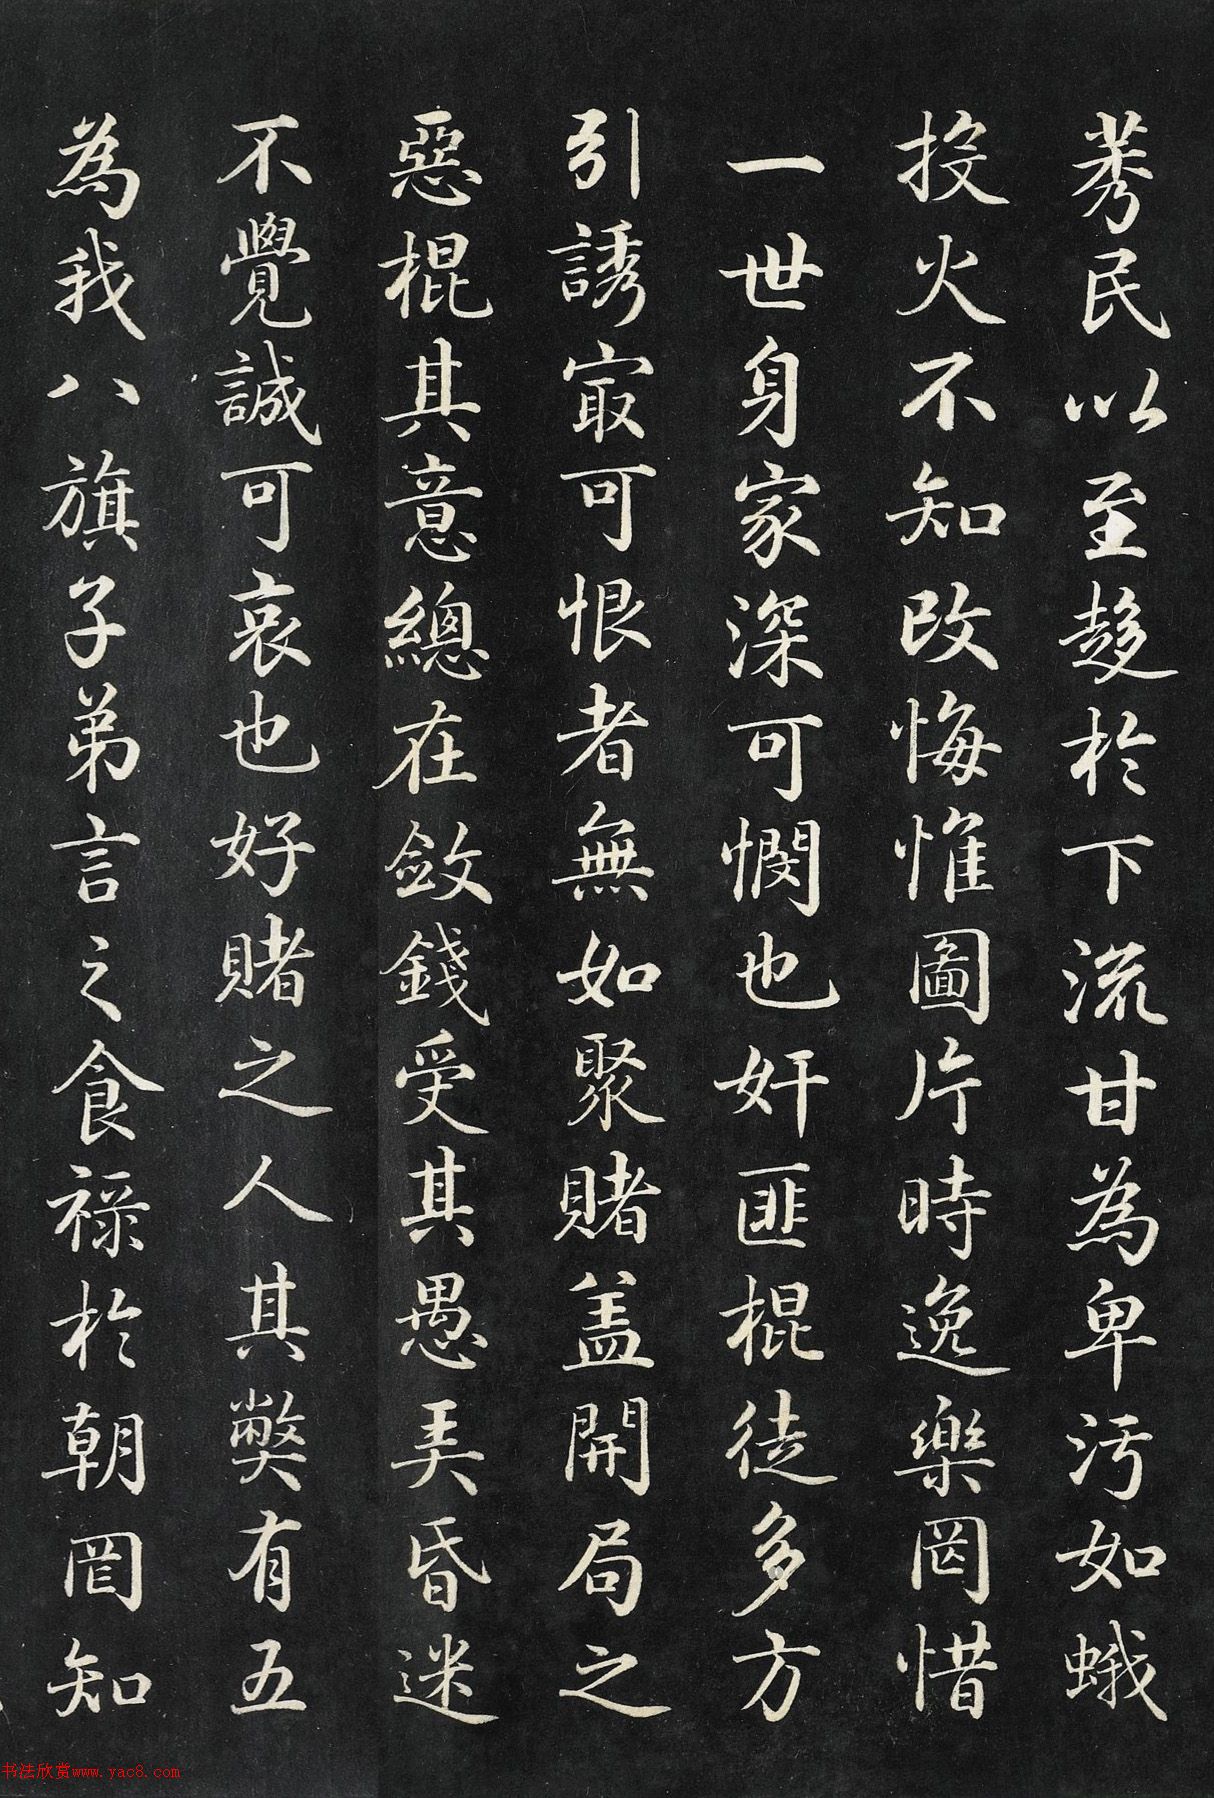 莠民以至趍於下流甘為卑污如蛾
投火不知改悔惟圖片時逸樂罔惜
一世身家深可憫也奸匪棍徒多方
引誘㝡可恨者無如聚賭盖開局之
惡棍其意總在斂錢受其愚弄昏迷
不覺誠可哀也好賭之人其弊有五
為我八旗子弟言之食祿於朝罔知
书法欣赏www.yac8.com